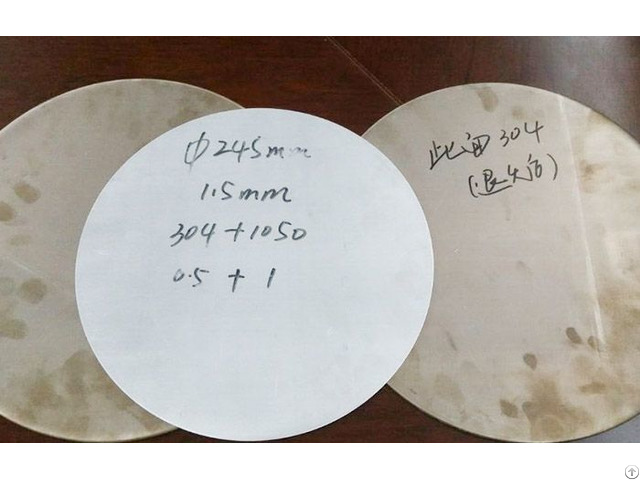 Φ245mm
1.5mm
304+1050
0.5 + 1
此面304
(退火后)